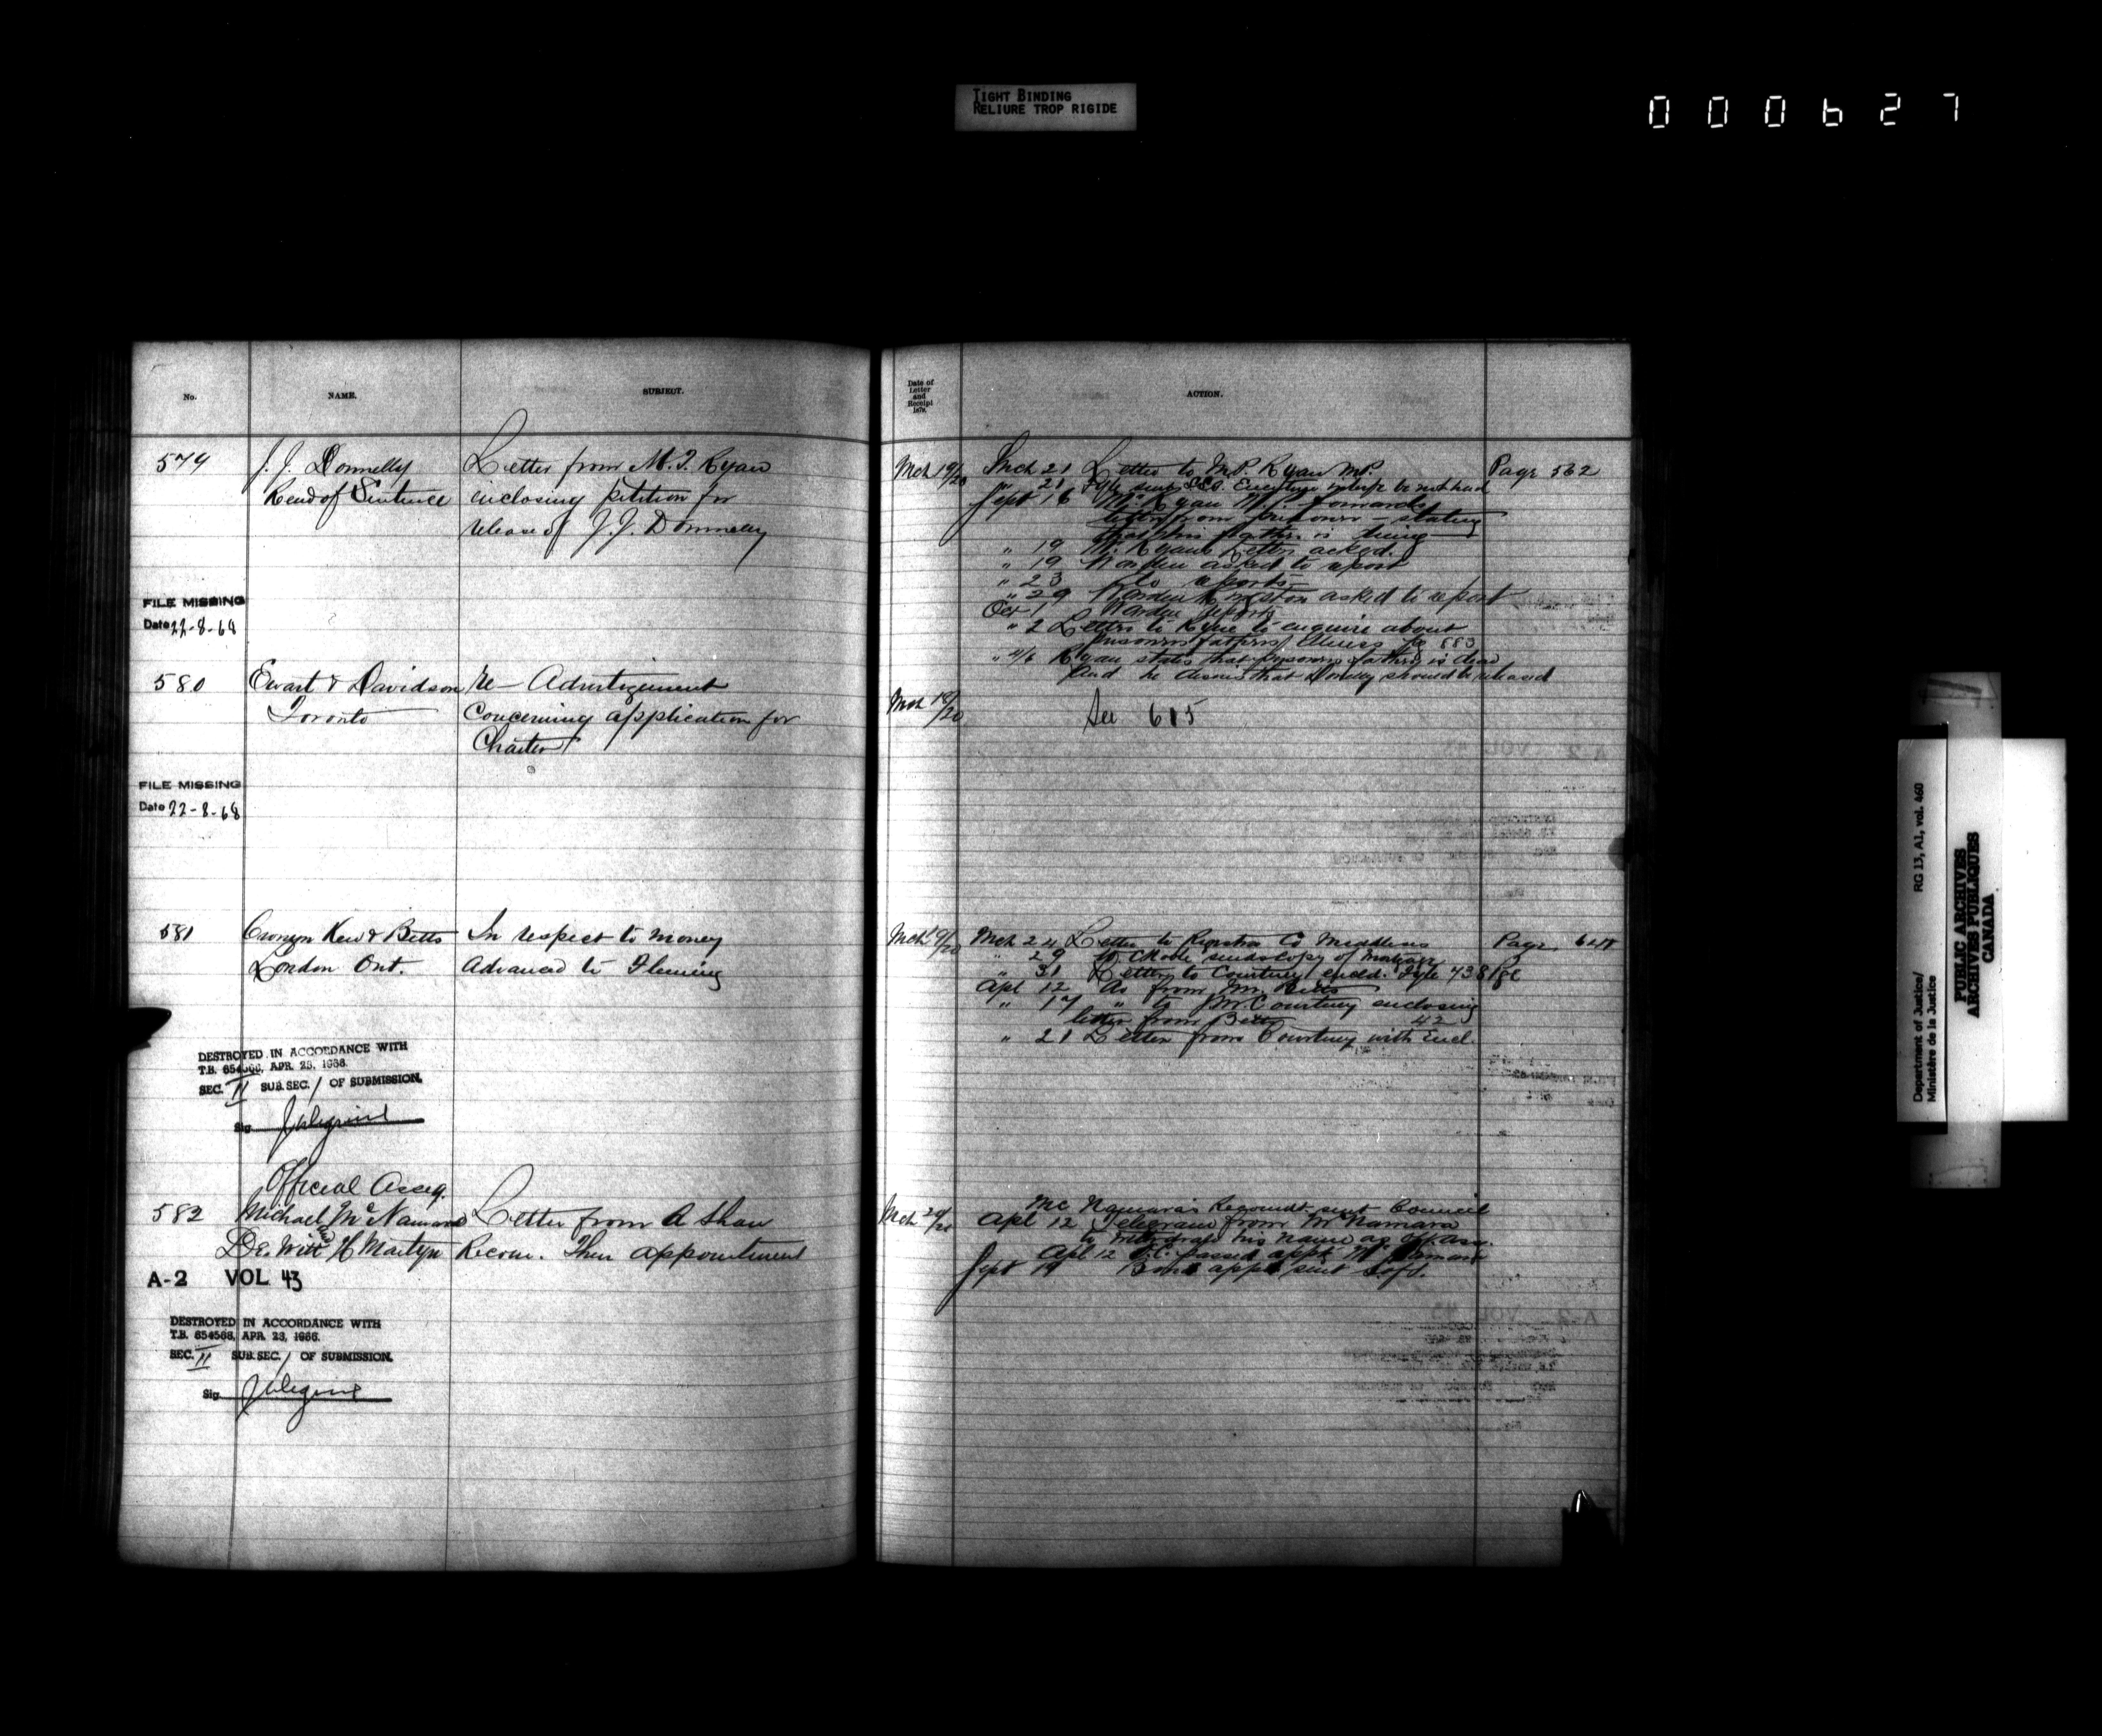 TIGHT BINDING
RELIURE TROP RIGIDE
000627
No.
NAME.
SUBJECT.
579
J. J. Donnelly
Rem of Sentence
Letter from M. P. Ryan
inclosing petition for
release of J. J. Donnelly
FILE MISSING
Date 22-8-68
580
Ewart & Davidson
Toronto
re- Advertizement
Concerning application for
Charter
FILE MISSING
Date 22-8-68
581
Cronyn Kew & Betts
London Ont.
In respect to money
Advanced to Fleming
DESTROYED IN ACCORDANCE WITH
T.B. 654568, APR. 23, 1966.
SEC. II SUB.SEC. / OF SUBMISSION.
Sig.
Official Asseg.
582
Michael McNamara
and
De Witt H Martyn
Letter from A Shaw
Recom. Their appointment
A-2 VOL 43
DESTROYED IN ACCORDANCE WITH
T.B. 654568, APR. 23, 1966.
SEC. II SUB.SEC. / OF SUBMISSION.
Sig.
Date of
Letter
and
Receipt
1879.
ACTION.
Mch 19/20
Mch 21 Letter to M.P. Ryan MP.
Page 562
" 21 be not had
Sept 16 Mr. Ryan M.P. forwards
letter from prisoner - stating
that his father is dying
" 19 Mr. Ryan's Letter acked.
" 19 Warden asked to report
" 23 Do reports
" 29 Warden Kingston asked to report
Oct 1 Warden reports
" 2 Letter to Ryan to enquire about
prisoners fathers illness Pg 883
" 4/6 Ryan states that prisoners father is dead
and he desires that Donnelly should be released
Mch 19/20
See 615
Mch 19/20
Mch 24 Letter to Registrar Co Middlesex
Page 648
" 29 sends copy of Mortgage
" 31 Letter to Courtney encld. Fyle 438/80
Apl 12 As from Mr. Betts
" 17 " to J M Courtney enclosing
letter from Betts 42
" 21 Letter from Courtney with Encl.
Mch 20/20
Mc Namara's Recomdt. sent Council
Apl 12 Telegram from McNamara
to withdraw his name as off assg.
Apl 12 O.C. passed appt McNamara
Sept 19 Bond appt sent S. of S.
Department of Justice/
Ministère de la Justice
RG 13, A1, vol. 460
PUBLIC ARCHIVES
ARCHIVES PUBLIQUES
CANADA